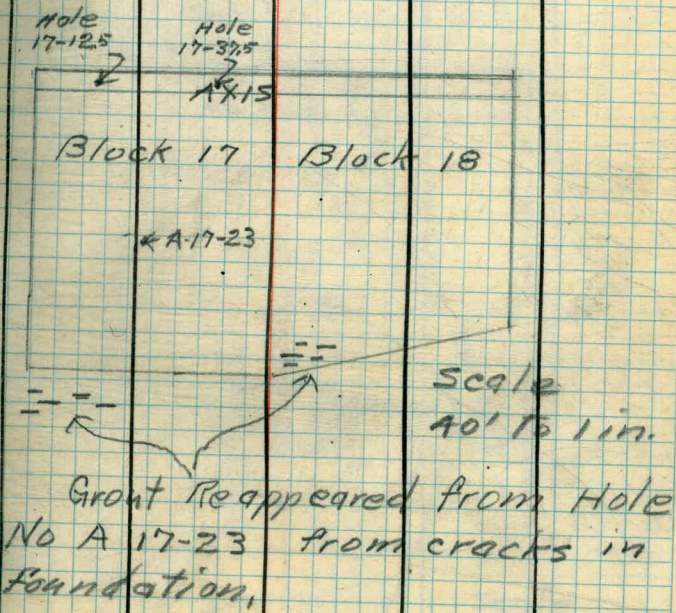 Hole
17-12.5
Hole
17-37.5
AXIS
Block 17
Block 18
A-17-23
Scale
40' to 1 in.
Grout Reappeared from Hole
No A 17-23 from cracks in
foundation.